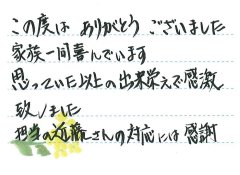 この度は ありがとう ございました
家族一同喜んでいます
思っていた以上の出来栄えで感激
致しました
担当の近藤さんの対応には感謝